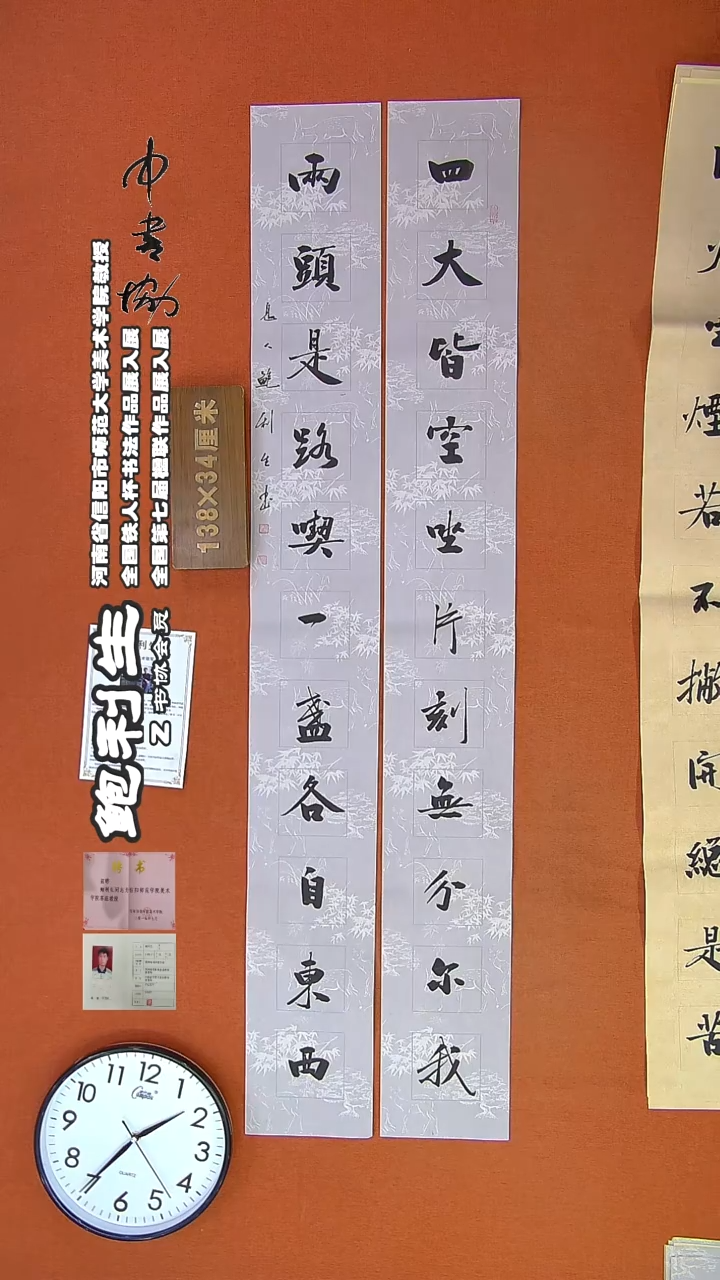 四大皆空坐片刻無分尔我
兩頭是路喫一盞各自東西
息人鮑利生書
中书协
河南省信阳市师范大学美术学院教授
全国铁人杯书法作品展入展
全国第七届楹联作品展入展
鲍利生
Z书协会员
138×34厘米
煙若不撇開總是苦
12
1
2
3
4
5
6
7
8
9
10
11
QUARTZ